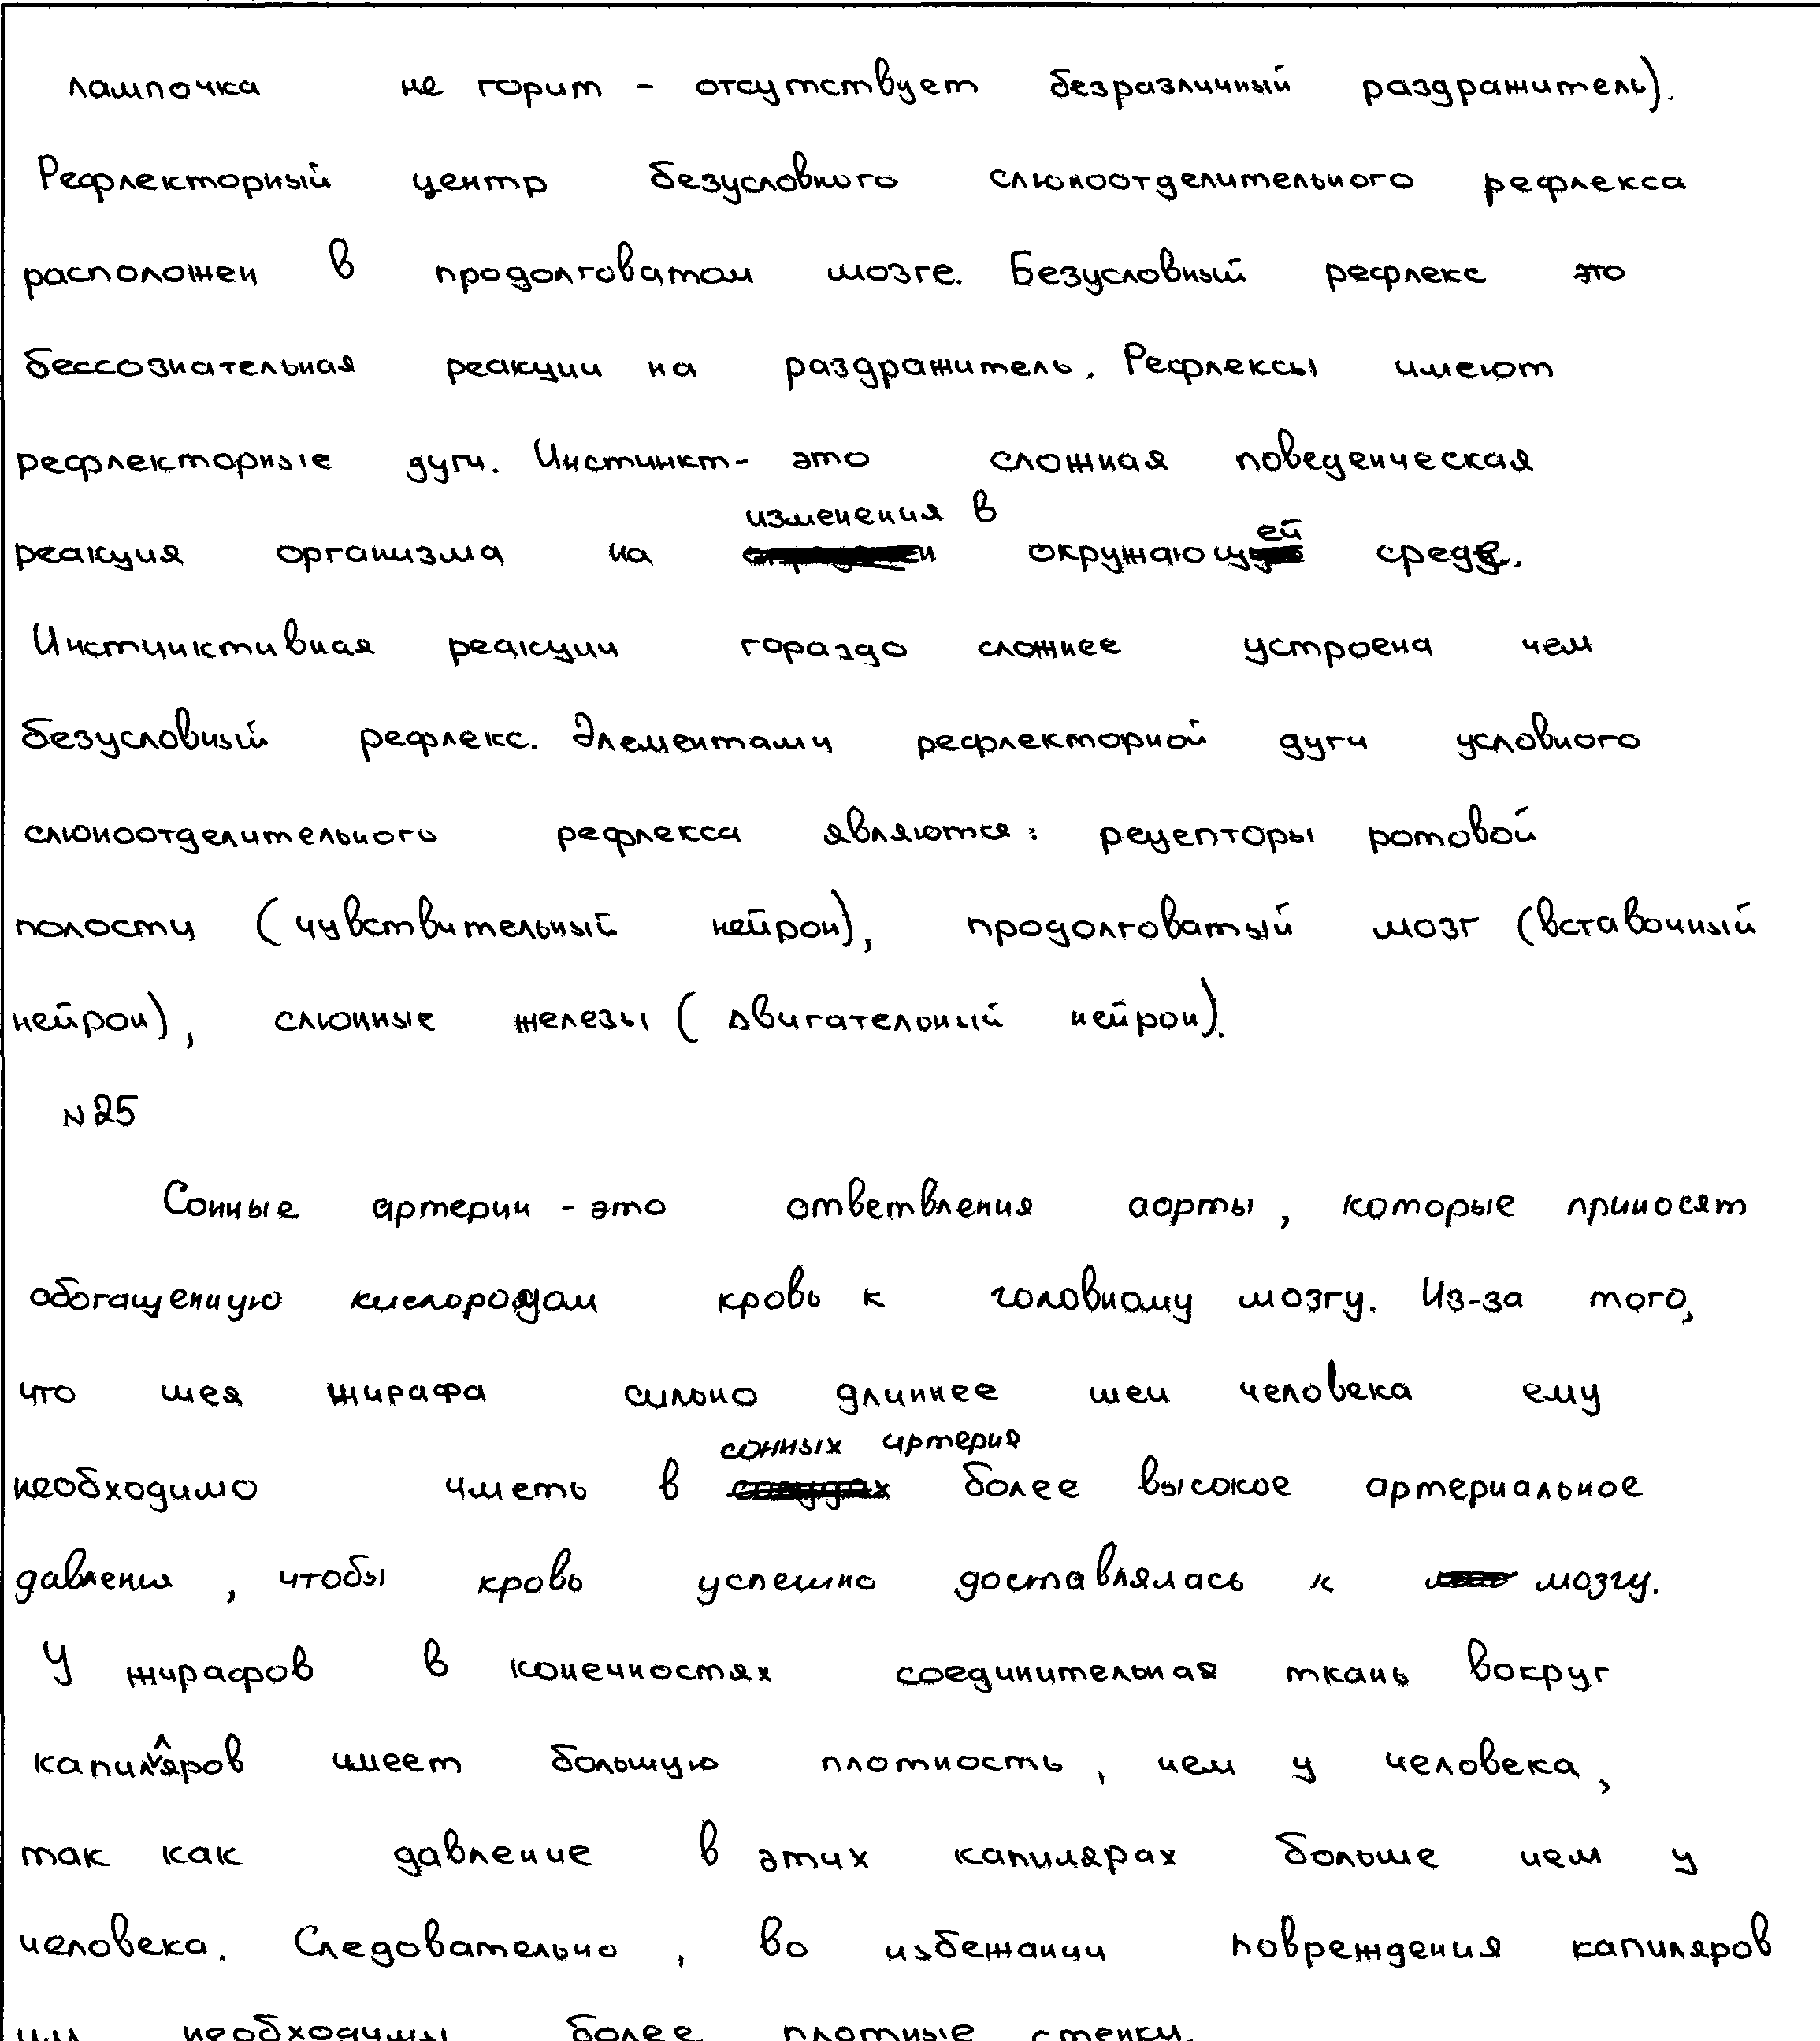 лампочка не горит - отсутствует безразличный раздражитель).
Рефлекторный центр безусловного слюноотделительного рефлекса
расположен в продолговатом мозге. Безусловный рефлекс это
бессознательная реакции на раздражитель. Рефлексы имеют
рефлекторные дуги. Инстинкт- это сложная поведенческая
реакция организма на изменения в окружающей среде.
Инстинктивная реакции гораздо сложнее устроена чем
безусловный рефлекс. Элементами рефлекторной дуги условного
слюноотделительного рефлекса являются: рецепторы ротовой
полости (чувствительный нейрон), продолговатый мозг (вставочный
нейрон), слюнные железы ( двигательный нейрон).
N25
Сонные артерии - это ответвления аорты, которые приносят
обогащенную кислородом кровь к головному мозгу. Из-за того,
что шея жирафа сильно длиннее шеи человека ему
необходимо иметь в сонных артерия более высокое артериальное
давления, чтобы кровь успешно доставлялась к мозгу.
У жирафов в конечностях соединительная ткань вокруг
капилляров имеет большую плотность, чем у человека,
так как давление в этих капилярах больше чем у
человека. Следовательно, во избежании повреждения капиляров
им необходимы более плотные стенки.